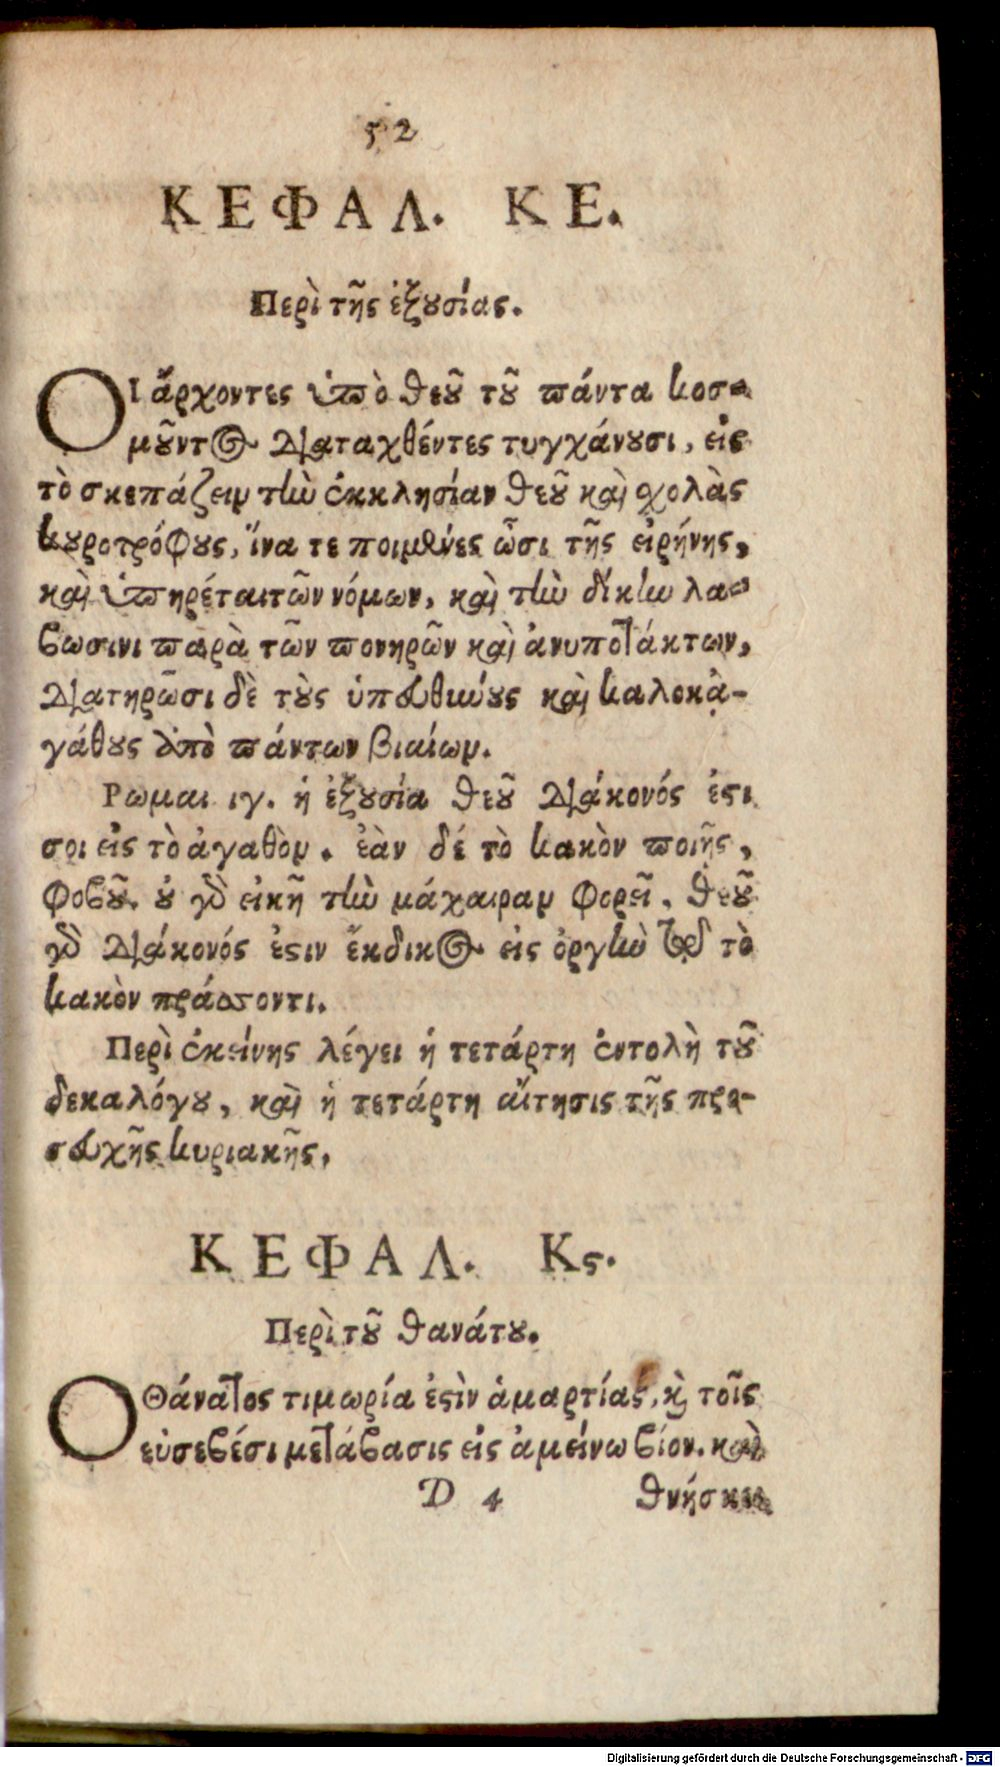 52
ΚΕΦΑΛ. ΚΕ.
Περὶ τῆς ἐξουσίας.
ΟΙ ἄρχοντες ὑπὸ θεοῦ τοῦ πάντα κοσ-
μοῦντος διαταχθέντες τυγχάνουσι, εἰς
τὸ σκεπάζειν τὴν ἐκκλησίαν θεοῦ καὶ σχολὰς
κουροτρόφους, ἵνα τε ποιμένες ὦσι τῆς εἰρήνης,
καὶ ὑπηρέται τῶν νόμων, καὶ τὴν δίκην λα-
βωσινι παρὰ τῶν πονηρῶν καὶ ἀνυποτάκτων,
διατηρῶσι δὲ τοὺς ὑπευθηνους καὶ καλοκὰ-
γάθους ἀπὸ πάντων βιαίων.
Ρωμαι ιγ. ἡ ἐξουσία θεοῦ διάκονός ἐστι
σοι εἰς τὸ ἀγαθὸν. ἐὰν δέ τὸ κακὸν ποιῇς,
φοβοῦ. οὐ γὰρ εἰκῆ τὴν μάχαιραν φορεῖ, θεοῦ
γὰρ διάκονός ἐστιν ἔκδικος εἰς ὀργὴν τῷ τὸ
κακὸν πράσσοντι.
Περὶ ἐκείνης λέγει ἡ τετάρτη ἐντολὴ τοῦ
δεκαλόγου, καὶ ἡ τετάρτη αἴτησις τῆς προ-
σευχῆς κυριακῆς.
ΚΕΦΑΛ. Κς.
Περὶ τοῦ θανάτου.
Ο Θάνατος τιμωρία ἐστὶν ἁμαρτίας, καὶ τοῖς
εὐσεβέσι μετάβασις εἰς ἀμείνω βίον. καὶ
D 4 θνήσκει